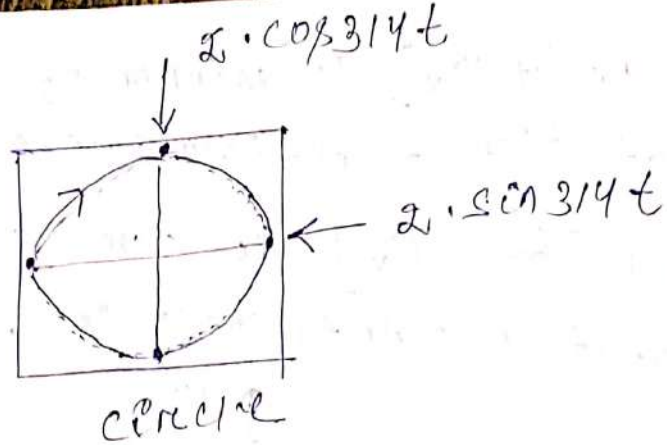 2 · cos 314 t
2 · sin 314 t
circle